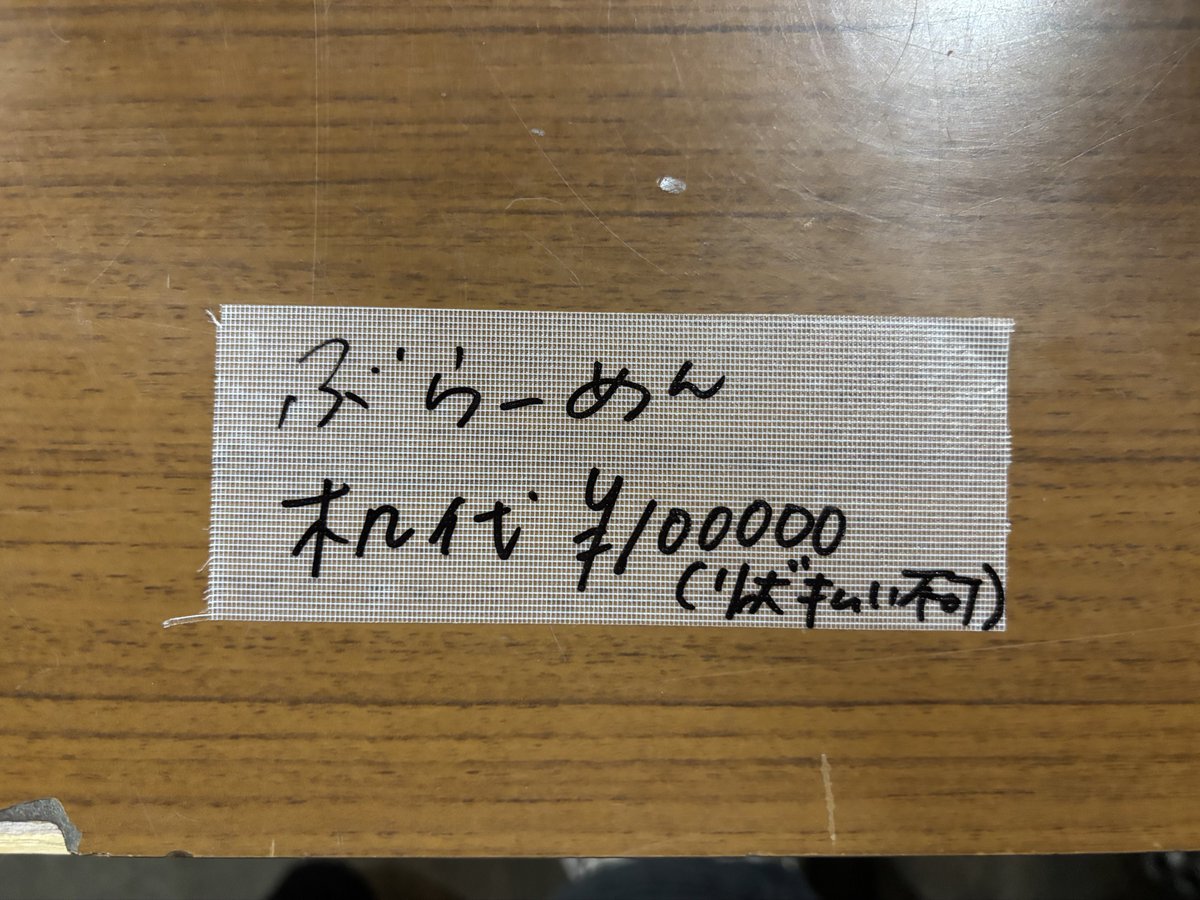 ぶらーめん
机代 ¥100000
(リボ払い不可)